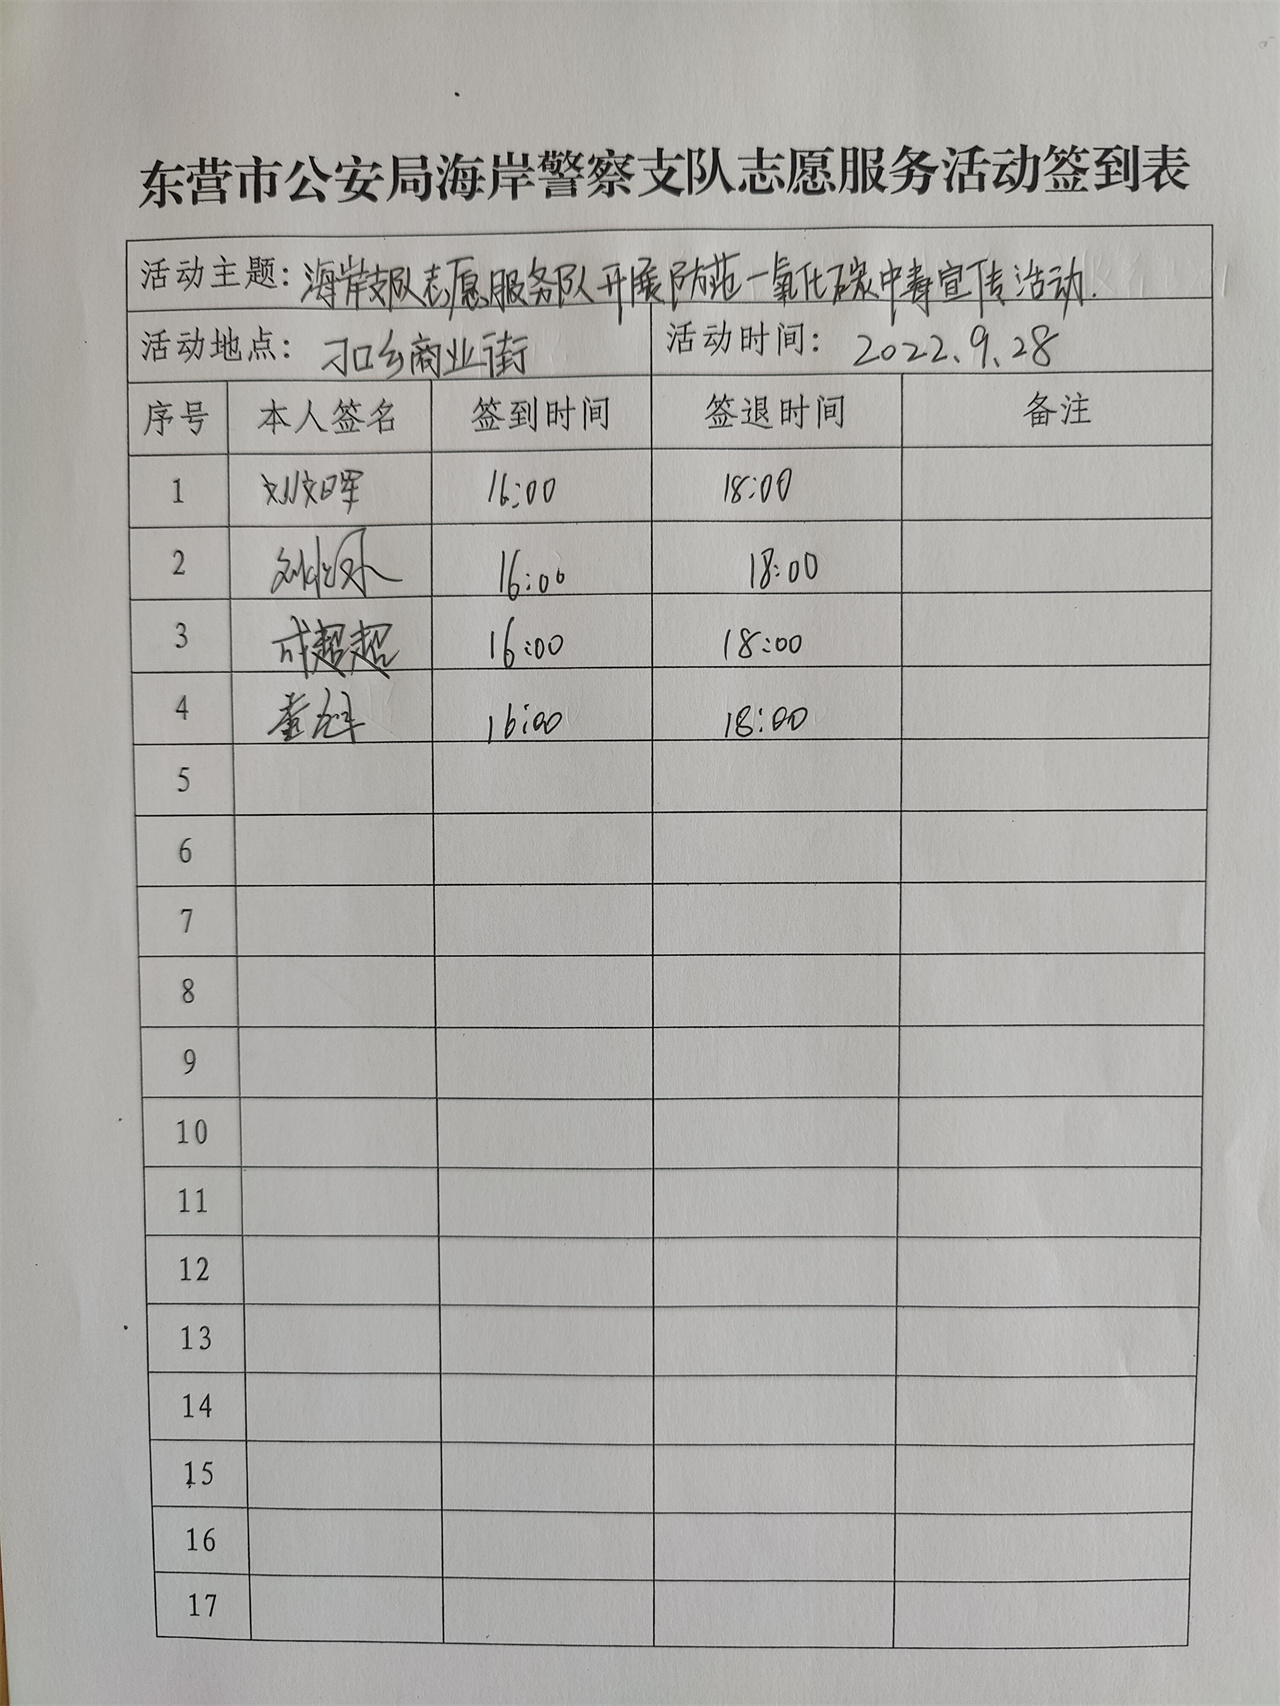 东营市公安局海岸警察支队志愿服务活动签到表
活动主题：海岸支队志愿服务队开展防范一氧化碳中毒宣传活动.
活动地点：刁口乡商业街 活动时间：2022.9.28
序号 本人签名 签到时间 签退时间 备注
1 刘文晖 16:00 18:00
2 16:00 18:00
3 成超超 16:00 18:00
4 16:00 18:00
5
6
7
8
9
10
11
12
13
14
15
16
17